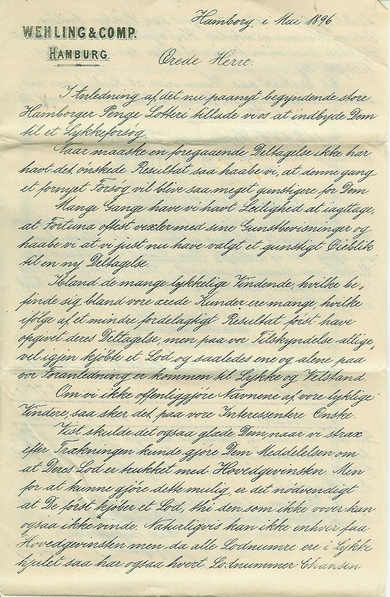 WEHLING & COMP.
HAMBURG.
Hamborg, i Mai 1896
Ærede Herre.
I Anledning af det nu paanyt begyndende store
Hamborger Penge Lotteri tillade vi os at indbyde Dem
til et Lykkeforsøg.
Naar maaske en foregaaende Deltagelse ikke har
havt det ønskede Resultat saa haabe vi, at denne gang
et fornyet Forsøg vil blive saa meget gunstigere for Dem
Mange Gange have vi havt Leilighed at iagttage,
at Fortuna oftest vexler med sine Gunstbevisninger og
haabe vi at vi just nu have valgt et gunstigt Øieblik
til en ny Deltagelse
Ibland de mange lykkelige Vindende, hvilke be,
finde sig bland vore ærede Kunder, ere mange, hvilke
ifølge af et mindre fordelagtigt Resultat først have
opgivet deres Deltagelse, men paa vor Tilskyndelse allige,
vel igjen kjøbte et Lod, og saaledes ene og alene paa
vor Foranledning er kommen til Lykke og Velstand
Om vi ikke offentliggjøre Navnene af vore lyklige
Vindere, saa sker det paa vore Interessenters Ønske
Vist skulde det ogsaa glæde Dem, naar vi strax
efter Trækningen kunde gjøre Dem Meddelelsen om
at Deres Lod er trukket med Hovedgevinsten. Men
for at kunne gjøre dette mulig, er det nødvendigt
at De først kjøber et Lod, thi den som ikke vover kan
ogsaa ikke vinde. Naturligvis kan ikke enhver faa
Hovedgevinsten men da alle Lodnumre ere i Lykke
hjulet saa har ogsaa hvert Lodnummer Chansen